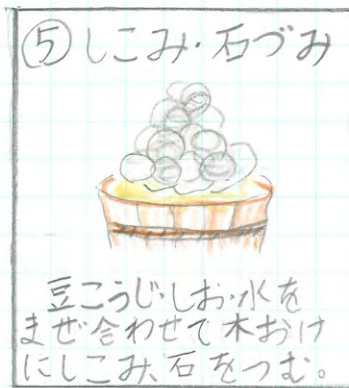 ⑤しこみ・石づみ
豆こうじ・しお・水を
まぜ合わせて木おけ
にしこみ、石をつむ。